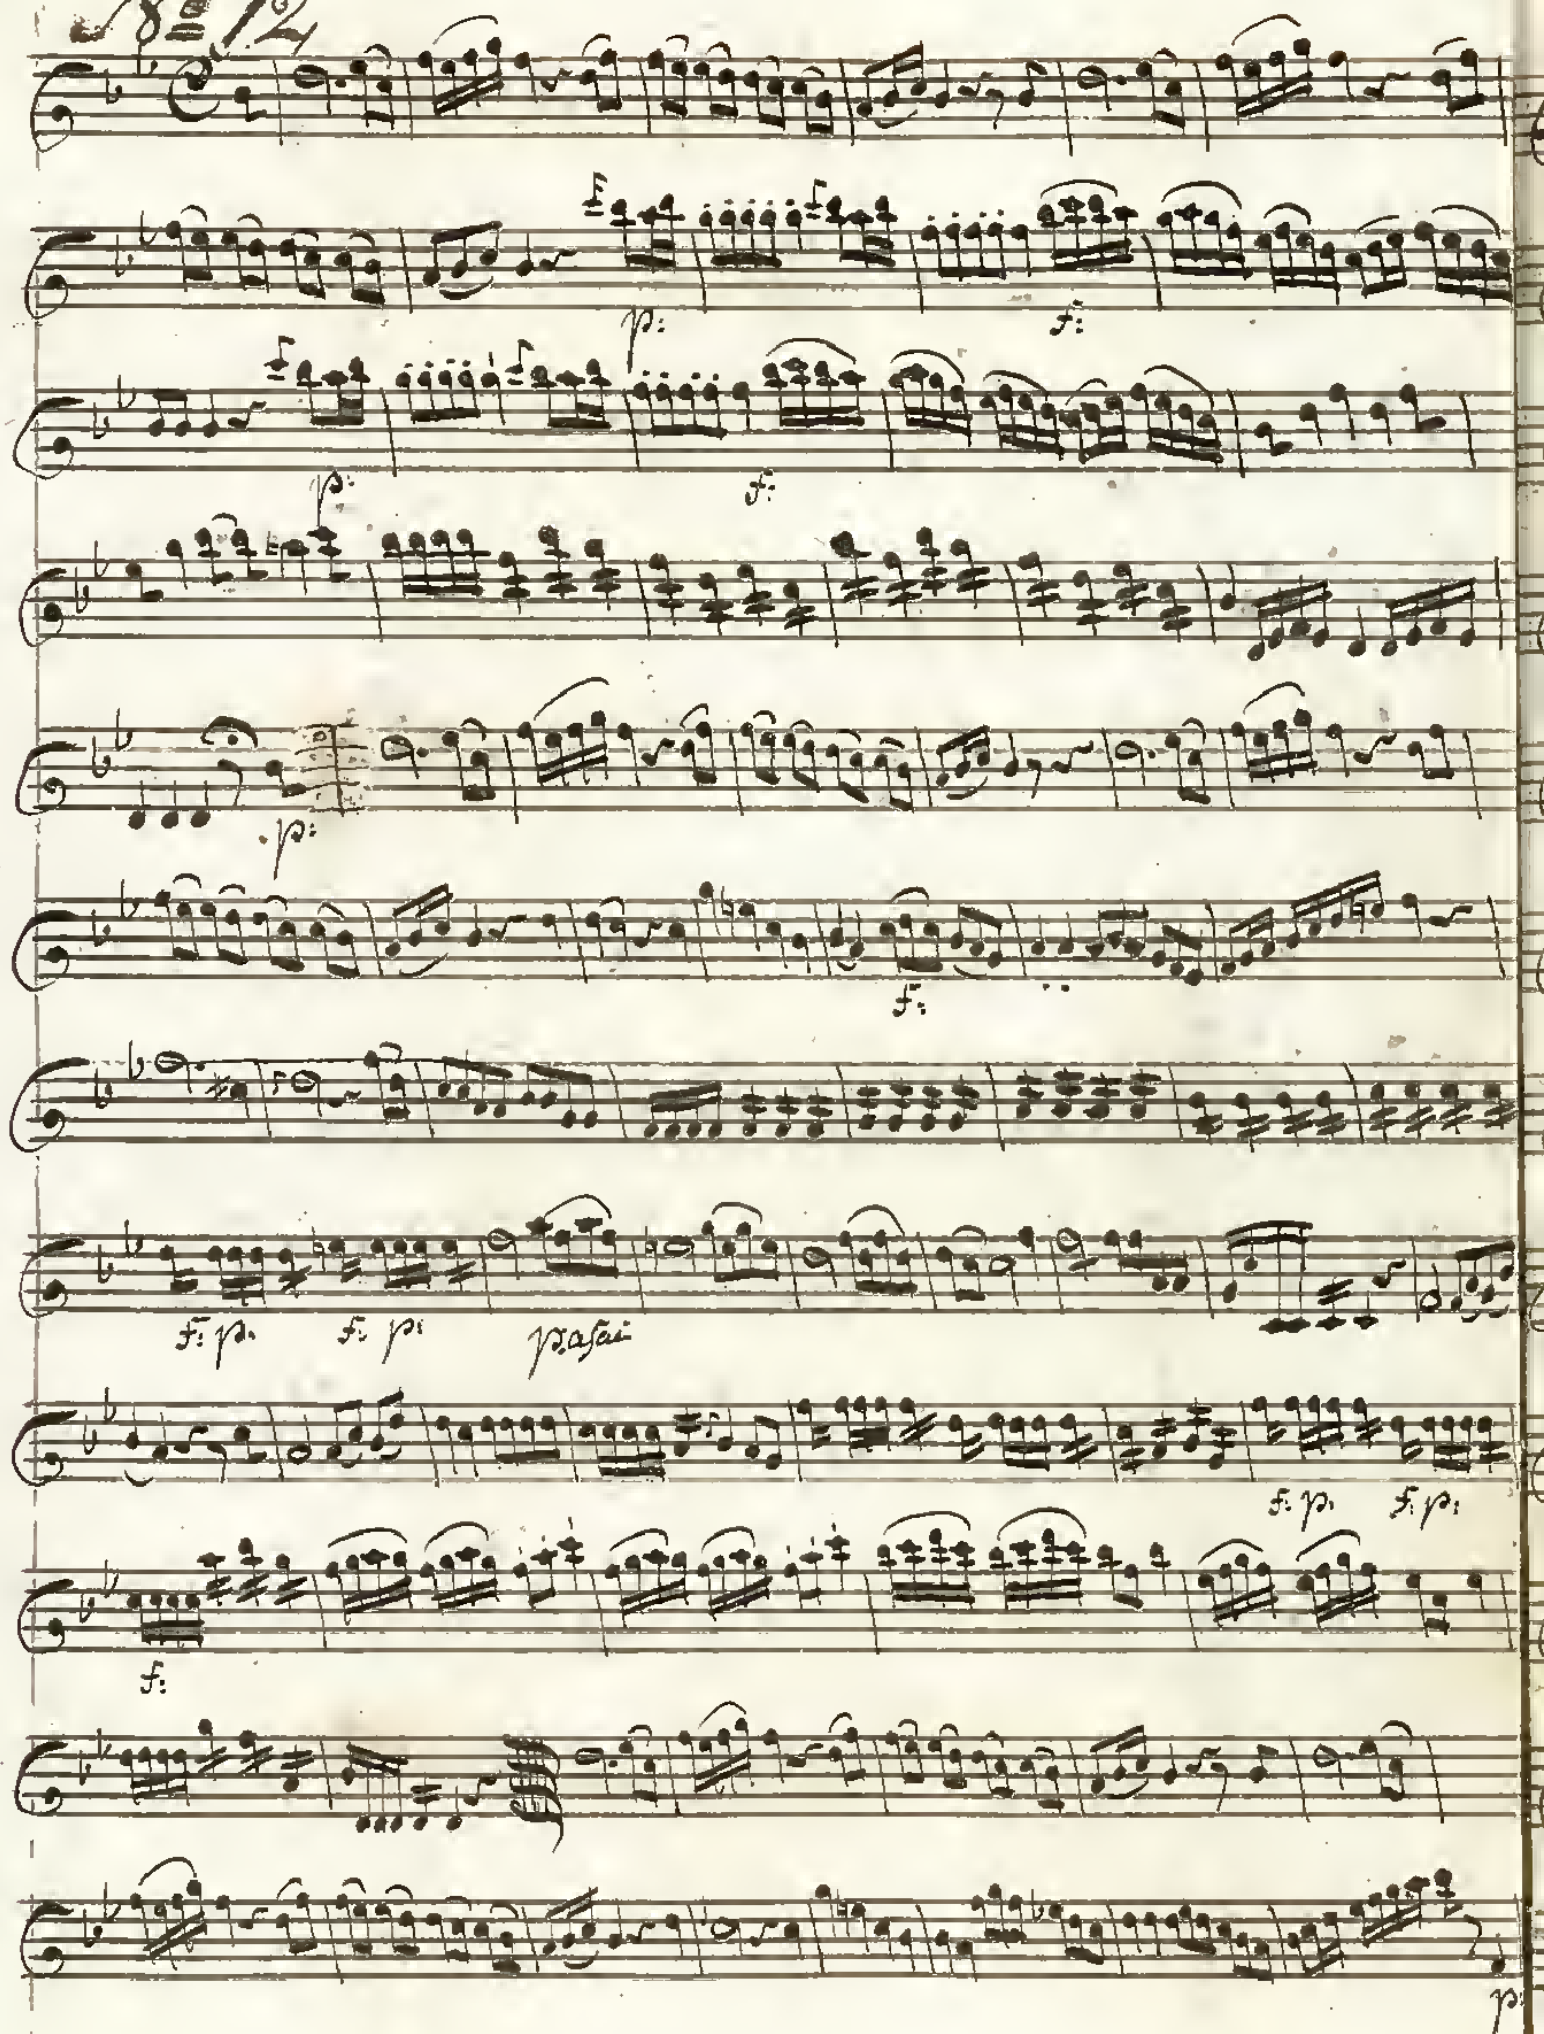 N 8 12
p: f:
p: f:
p:
f:
f: p. f: p: p. asai
f: p. f: p:
f:
p: